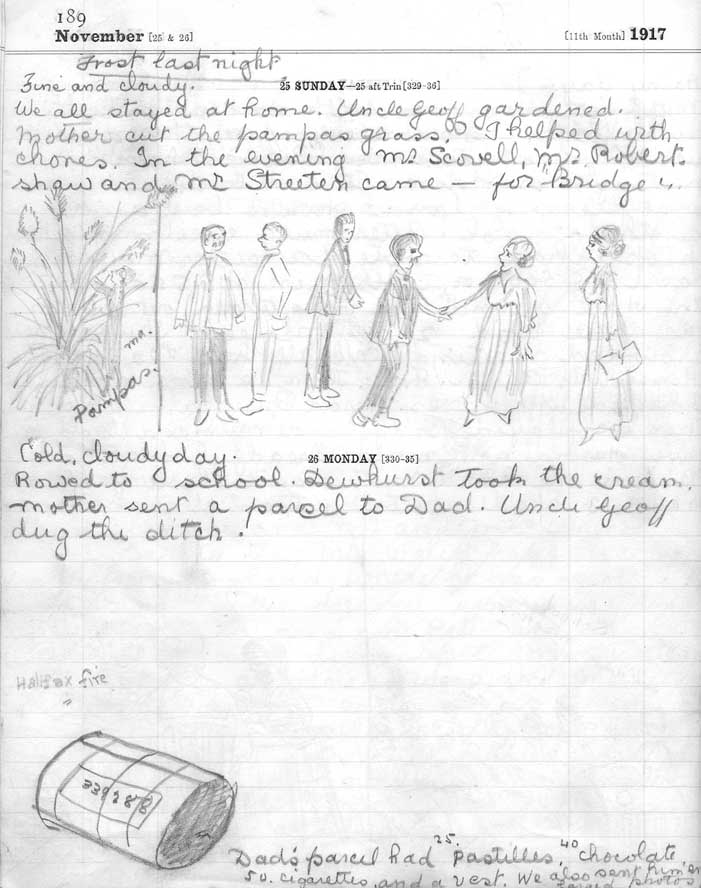 189
November [25 & 26] [11th Month] 1917
Frost last night
Fine and cloudy. 25 SUNDAY—25 aft Trin [329-36]
We all stayed at home. Uncle Geoff gardened.
Mother cut the pampas grass. I helped with
chores. In the evening Mr Scovell, Mr. Robert
shaw and Mr Streeten came — for "Bridge".
ma.
Pampas.
Cold, cloudy day. 26 MONDAY [330-35]
Rowed to school. Dewhurst took the cream.
Mother sent a parcel to Dad. Uncle Geoff
dug the ditch.
Halifax fire
339288
Dad's parcel had 25. Pastilles, 40 chocolate,
50. cigarettes, and a vest. We also sent him
photos